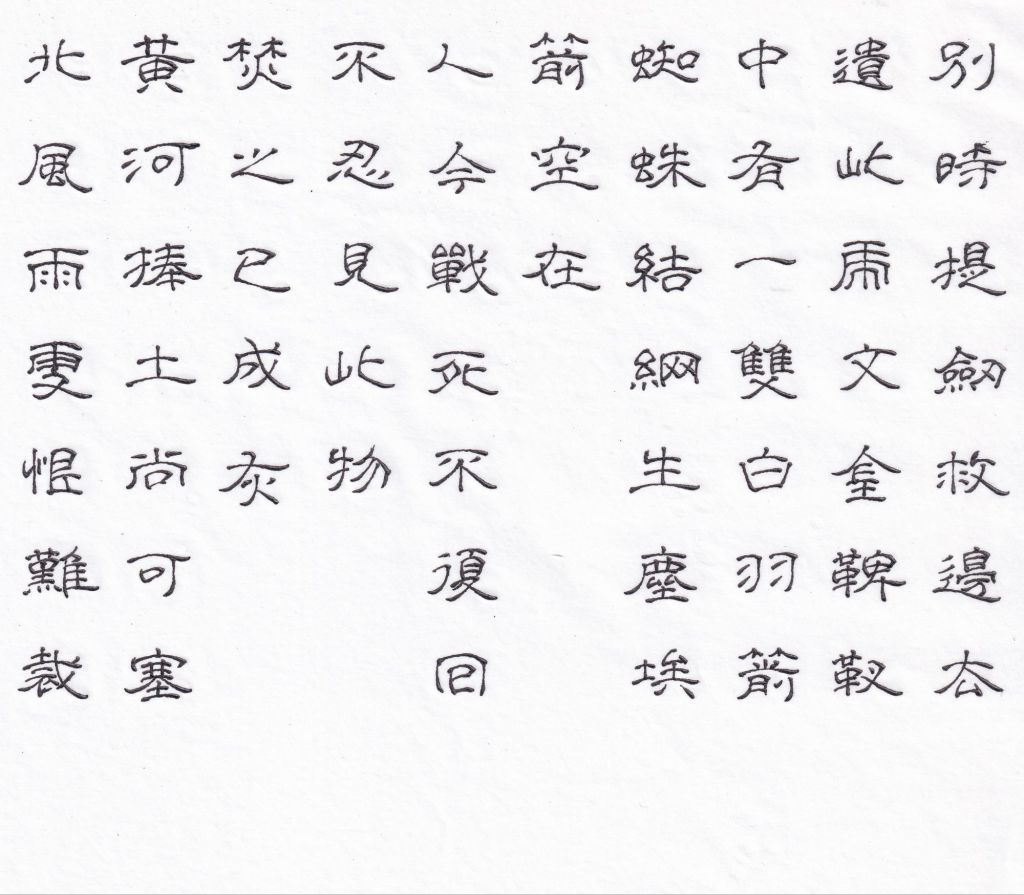 別時提劒救邊去
遺此虎文金鞞靫
中有一雙白羽箭
蜘蛛結網生塵埃
箭空在
人今戰死不復回
不忍見此物
焚之已成灰
黃河捧土尚可塞
北風雨雪恨難裁